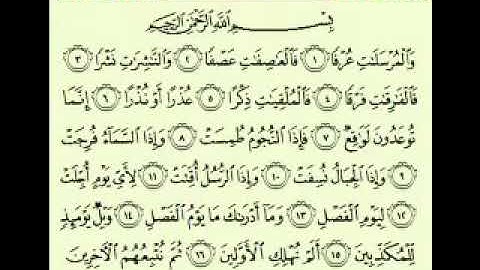 بِسْمِ ٱللَّهِ ٱلرَّحْمَٰنِ ٱلرَّحِيمِ
وَٱلْمُرْسَلَٰتِ عُرْفًا ١ فَٱلْعَٰصِفَٰتِ عَصْفًا ٢ وَٱلنَّٰشِرَٰتِ نَشْرًا ٣
فَٱلْفَٰرِقَٰتِ فَرْقًا ٤ فَٱلْمُلْقِيَٰتِ ذِكْرًا ٥ عُذْرًا أَوْ نُذْرًا ٦ إِنَّمَا
تُوعَدُونَ لَوَٰقِعٌ ٧ فَإِذَا ٱلنُّجُومُ طُمِسَتْ ٨ وَإِذَا ٱلسَّمَآءُ فُرِجَتْ
٩ وَإِذَا ٱلْجِبَالُ نُسِفَتْ ١٠ وَإِذَا ٱلرُّسُلُ أُقِّتَتْ ١١ لِأَىِّ يَوْمٍ أُجِّلَتْ
١٢ لِيَوْمِ ٱلْفَصْلِ ١٣ وَمَآ أَدْرَىٰكَ مَا يَوْمُ ٱلْفَصْلِ ١٤ وَيْلٌ يَوْمَئِذٍ
لِّلْمُكَذِّبِينَ ١٥ أَلَمْ نُهْلِكِ ٱلْأَوَّلِينَ ١٦ ثُمَّ نُتْبِعُهُمُ ٱلْأَخِرِينَ